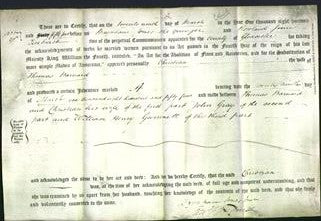 These are to Certify, that on the twenty ninth day of March in the Year One thousand eight hundred
and fifty four before us the younger and Rowland
two of the perpetual Commissioners appointed for the County of for taking
the acknowledgments of deeds by married women pursuant to an Act passed in the Fourth Year of the reign of his late
Majesty King William the Fourth, intituled "An Act for the Abolition of Fines and Recoveries, and for the Substitution of
more simple Modes of Assurance," appeared personally Christian the wife of
Thomas
and produced a certain Indenture marked A bearing date the day of
March one thousand eight hundred and fifty four and made between Thomas
and Christian his wife of the first part John Gray of the second
part and William Henry of the third part
and acknowledged the same to be her act and deed: And we do hereby Certify, that the said Christian
was, at the time of her acknowledging the said deed, of full age and competent understanding, and that
she was examined by us apart from her husband, touching her knowledge of the contents of the said deed, and that she freely
and voluntarily consented to the same.